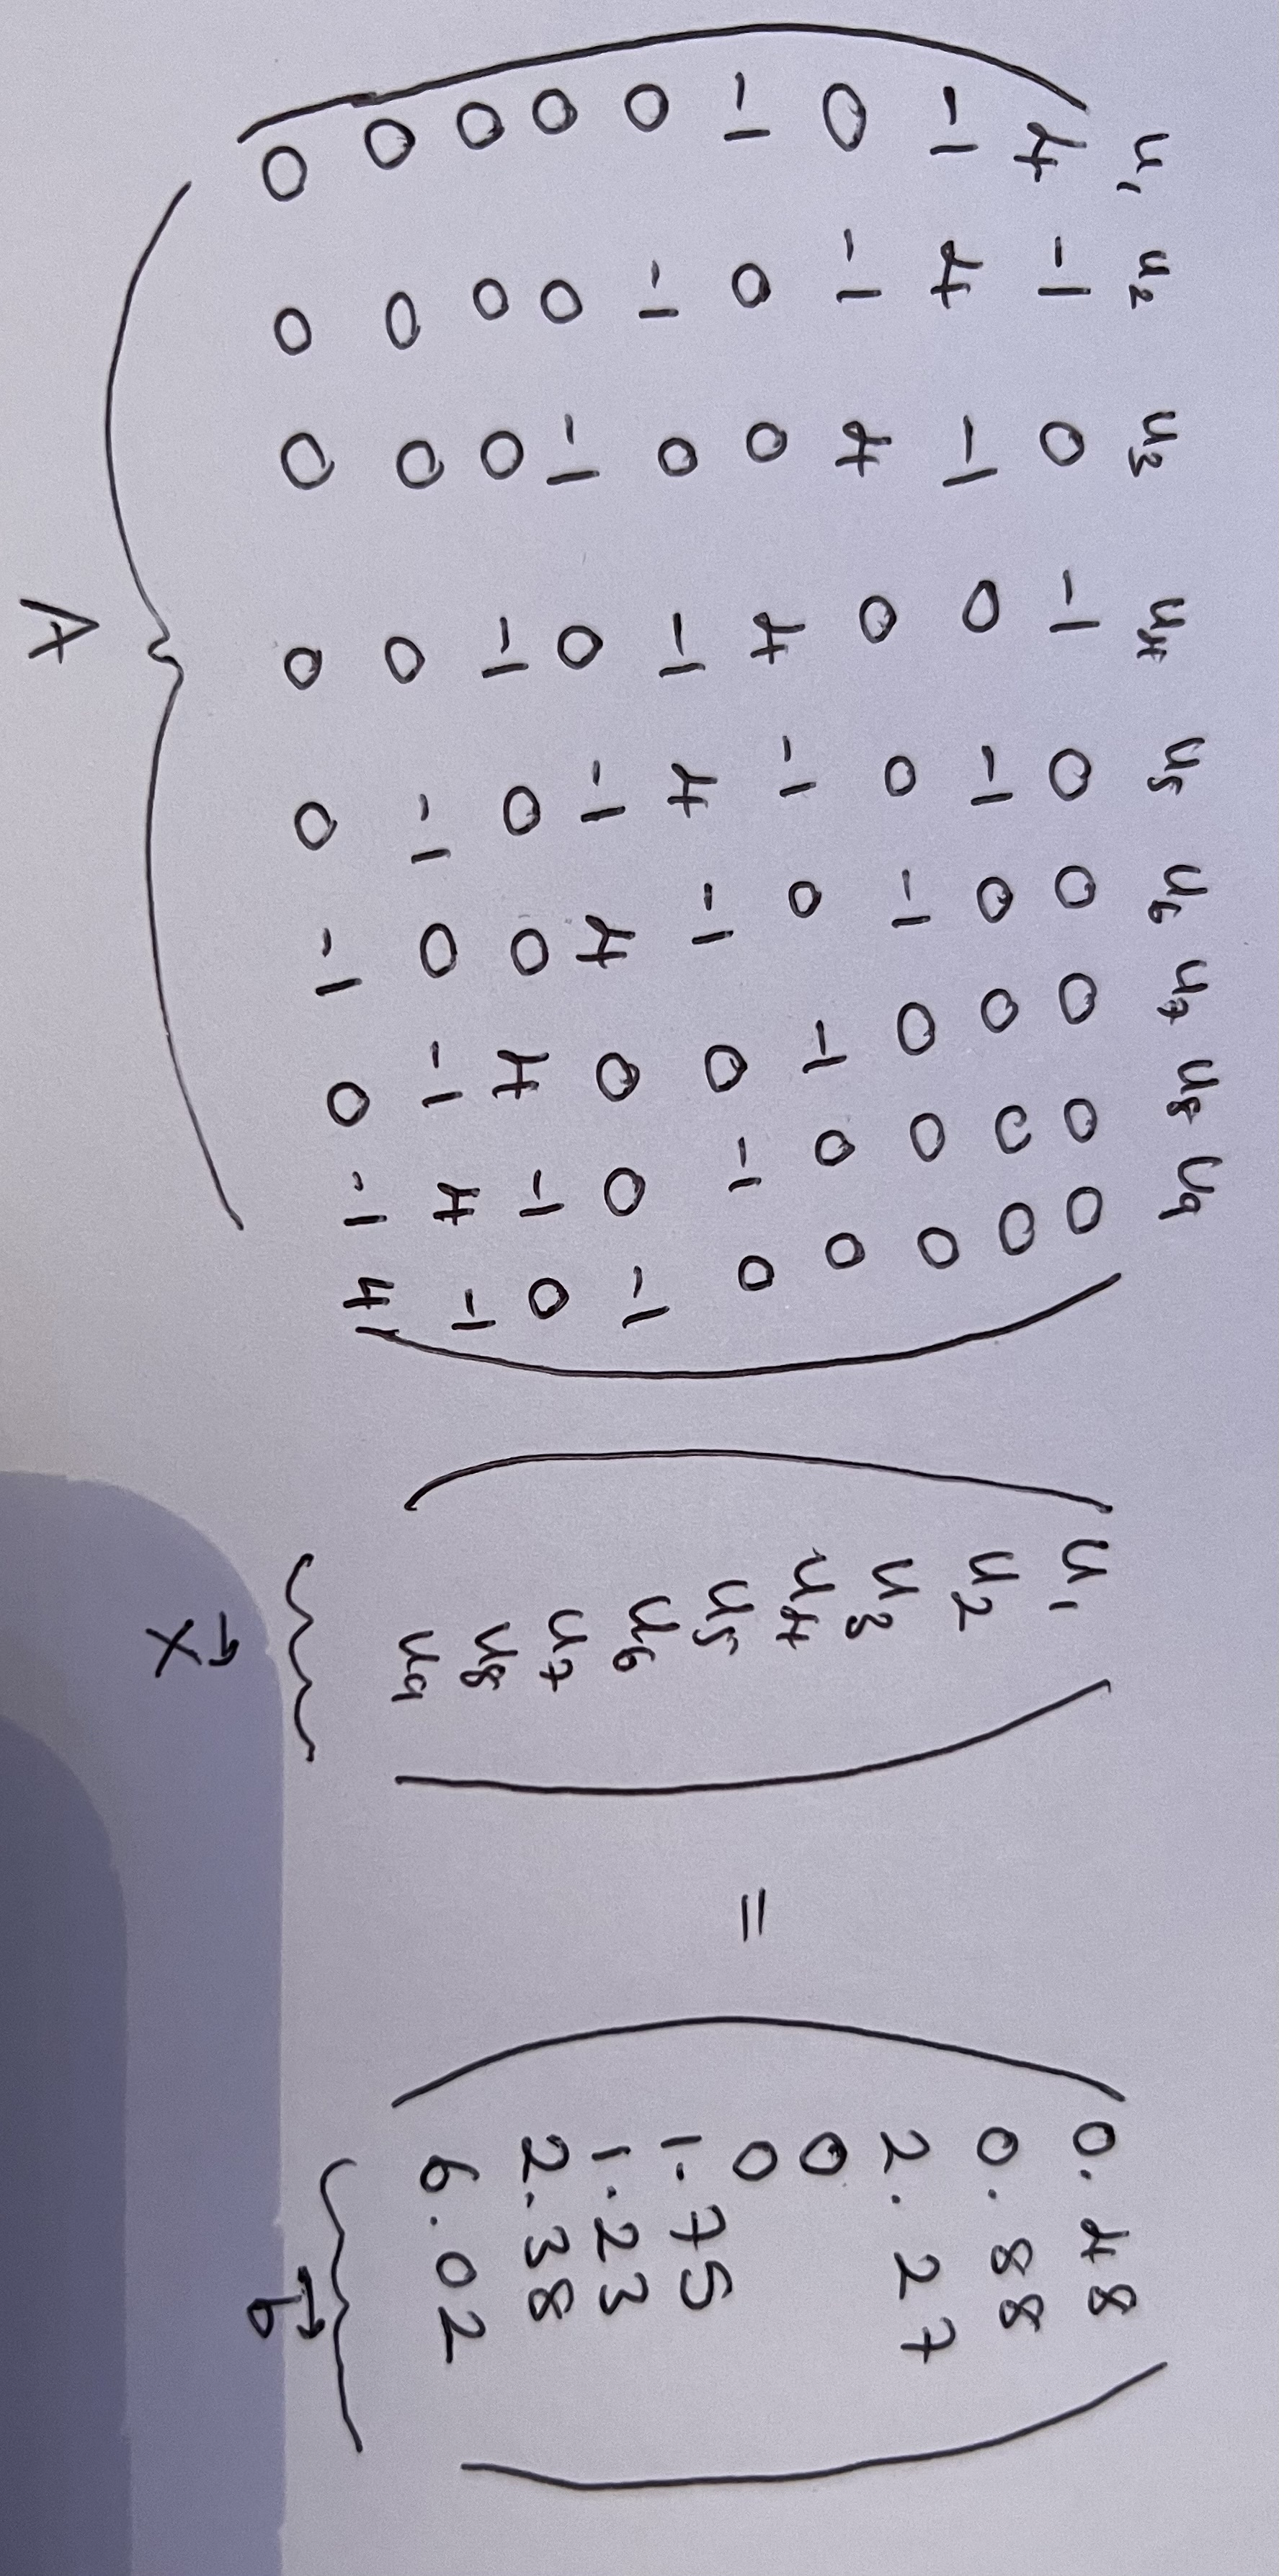 u₁ u₂ u₃ u₄ u₅ u₆ u₇ u₈ u₉
4 -1 0 -1 0 0 0 0 0 u₁ 0.48
-1 4 -1 0 -1 0 0 0 0 u₂ 0.88
0 -1 4 0 0 -1 0 0 0 u₃ 2.27
-1 0 0 4 -1 0 -1 0 0 u₄ 0
0 -1 0 -1 4 -1 0 -1 0 u₅ = 0
0 0 -1 0 -1 4 0 0 -1 u₆ 1.75
0 0 0 -1 0 0 4 -1 0 u₇ 1.23
0 0 0 0 -1 0 -1 4 -1 u₈ 2.38
0 0 0 0 0 -1 0 -1 4 u₉ 6.02
A x⃗ b⃗